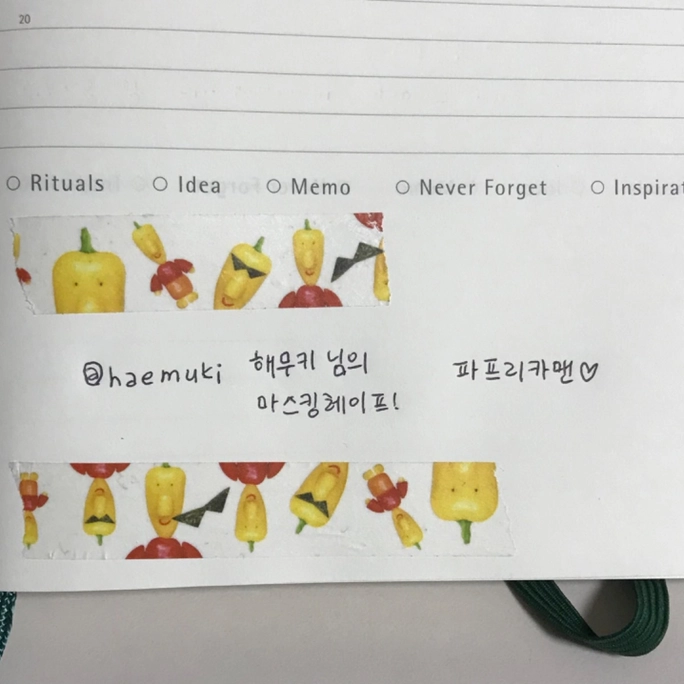 20
Rituals Idea Memo Never Forget Inspirat
@haemuki 해무키 님의 파프리카맨♡
마스킹테이프!